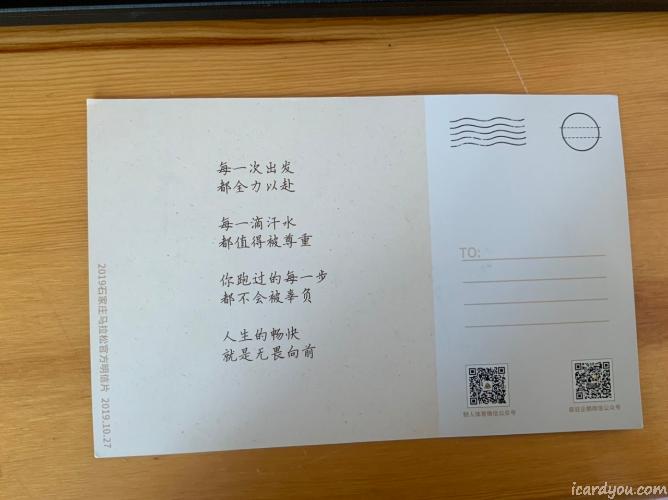 每一次出发
都全力以赴
每一滴汗水
都值得被尊重
你跑过的每一步
都不会被辜负
人生的畅快
就是无畏向前
2019石家庄马拉松官方明信片 2019.10.27
TO:
icardyou.com